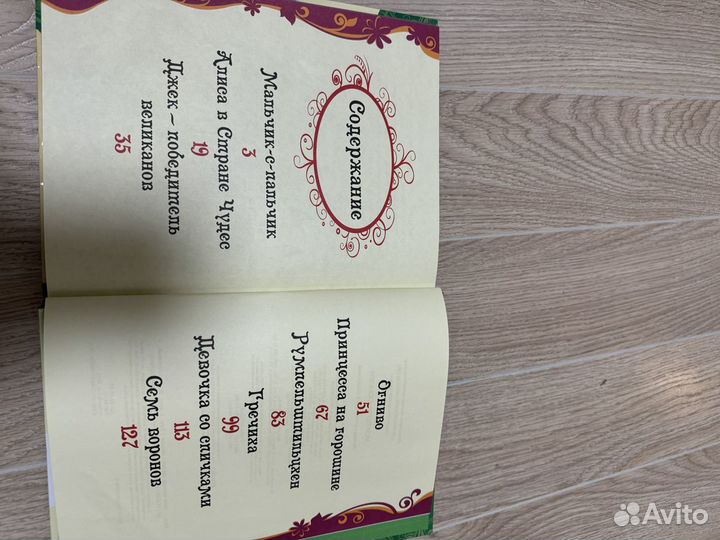 Содержание
Мальчик-с-пальчик
3
Алиса в Стране Чудес
19
Джек – победитель
великанов
35
Огниво
51
Принцесса на горошине
67
Румпельштильцхен
83
Гречиха
99
Девочка со спичками
113
Семь воронов
127
Avito